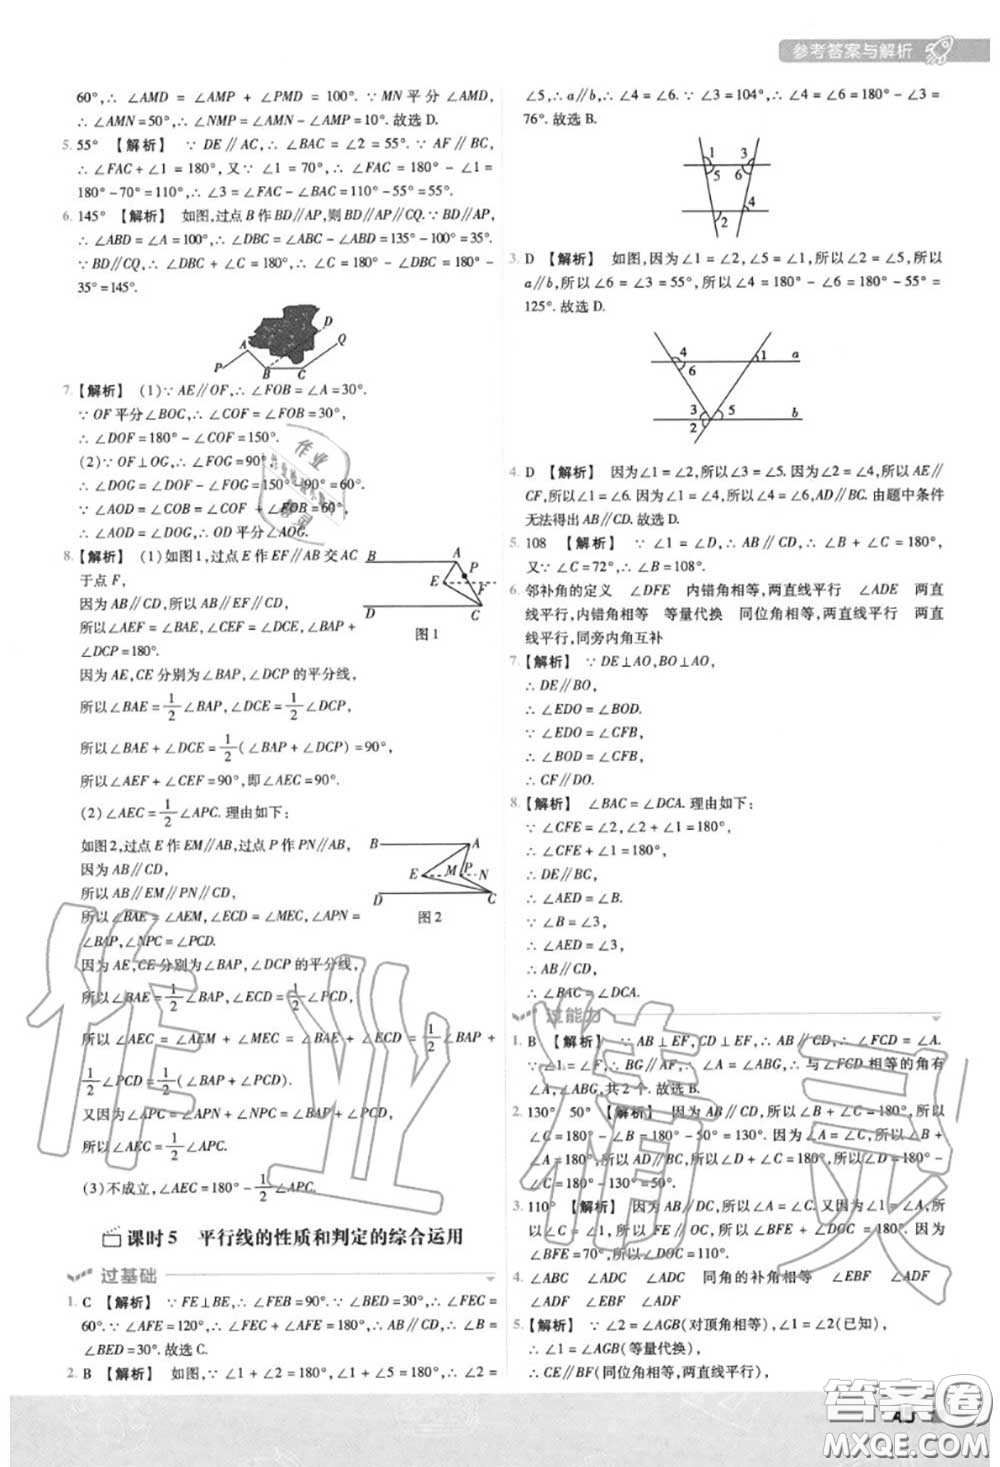 参考答案与解析
60°,∴ ∠AMD = ∠AMP + ∠PMD = 100°. ∵ MN 平分 ∠AMD,
∴ ∠AMN = 50°,∴ ∠NMP = ∠AMN - ∠AMP = 10°. 故选 D.
5. 55° 【解析】 ∵ DE∥AC,∴ ∠BAC = ∠2 = 55°. ∵ AF∥BC,
∴ ∠FAC + ∠1 = 180°,又∵ ∠1 = 70°,∴ ∠FAC = 180° - ∠1 =
180° - 70° = 110°,∴ ∠3 = ∠FAC - ∠BAC = 110° - 55° = 55°.
6. 145° 【解析】 如图,过点 B 作 BD∥AP,则 BD∥AP∥CQ. ∵ BD∥AP,
∴ ∠ABD = ∠A = 100°,∴ ∠DBC = ∠ABC - ∠ABD = 135° - 100° = 35°.
∵ BD∥CQ,∴ ∠DBC + ∠C = 180°,∴ ∠C = 180° - ∠DBC = 180° -
35° = 145°.
D
Q
A
P
B
C
7. 【解析】 (1)∵ AE∥OF,∴ ∠FOB = ∠A = 30°.
∵ OF 平分∠BOC,∴ ∠COF = ∠FOB = 30°,
∴ ∠DOF = 180° - ∠COF = 150°.
(2)∵ OF⊥OG,∴ ∠FOG = 90°,
∴ ∠DOG = ∠DOF - ∠FOG = 150° - 90° = 60°.
∵ ∠AOD = ∠COB = ∠COF + ∠FOB = 60°,
∴ ∠AOD = ∠DOG,∴ OD 平分∠AOG.
8. 【解析】 (1)如图 1,过点 E 作 EF∥AB 交 AC
于点 F,
因为 AB∥CD,所以 AB∥EF∥CD,
所以 ∠AEF = ∠BAE,∠CEF = ∠DCE,∠BAP +
∠DCP = 180°.
因为 AE,CE 分别为∠BAP,∠DCP 的平分线,
所以∠BAE = 1/2∠BAP,∠DCE = 1/2∠DCP,
所以∠BAE + ∠DCE = 1/2(∠BAP + ∠DCP) = 90°,
所以∠AEF + ∠CEF = 90°,即∠AEC = 90°.
B
A
P
E
F
D
C
图 1
(2)∠AEC = 1/2∠APC. 理由如下:
如图 2,过点 E 作 EM∥AB,过点 P 作 PN∥AB,
因为 AB∥CD,
所以 AB∥EM∥PN∥CD,
所以∠BAE = ∠AEM,∠ECD = ∠MEC,∠APN =
∠BAP,∠NPC = ∠PCD.
因为 AE,CE 分别为∠BAP,∠DCP 的平分线,
所以∠BAE = 1/2∠BAP,∠ECD = 1/2∠PCD,
所以 ∠AEC = ∠AEM + ∠MEC = ∠BAE + ∠ECD = 1/2∠BAP +
1/2∠PCD = 1/2(∠BAP + ∠PCD).
又因为∠APC = ∠APN + ∠NPC = ∠BAP + ∠PCD,
所以∠AEC = 1/2∠APC.
(3)不成立,∠AEC = 180° - 1/2∠APC.
B
A
E
M
P
N
D
C
图 2
课时 5 平行线的性质和判定的综合运用
过基础
1. C 【解析】 ∵ FE⊥BE,∴ ∠FEB = 90°. ∵ ∠BED = 30°,∴ ∠FEC =
60°. ∵ ∠AFE = 120°,∴ ∠FEC + ∠AFE = 180°,∴ AB∥CD,∴ ∠B =
∠BED = 30°. 故选 C.
2. B 【解析】 如图,∵ ∠1 + ∠2 = 180°,∠1 + ∠5 = 180°,∴ ∠2 =
∠5,∴ a∥b,∴ ∠4 = ∠6. ∵ ∠3 = 104°,∴ ∠4 = ∠6 = 180° - ∠3 =
76°. 故选 B.
1
3
5
6
4
2
3. D 【解析】 如图,因为∠1 = ∠2,∠5 = ∠1,所以∠2 = ∠5,所以
a∥b,所以∠6 = ∠3 = 55°,所以∠4 = 180° - ∠6 = 180° - 55° =
125°. 故选 D.
4
1
a
6
3
5
2
b
4. D 【解析】 因为∠1 = ∠2,所以∠3 = ∠5. 因为∠3 = ∠4,所以 AE∥
CF,所以∠1 = ∠6. 因为∠1 = ∠2,所以∠6 = ∠2,AD∥BC. 由题中条件
无法得出 AB∥CD. 故选 D.
5. 108 【解析】 ∵ ∠1 = ∠D,∴ AB∥CD,∴ ∠B + ∠C = 180°,
又∵ ∠C = 72°,∴ ∠B = 108°.
6. 邻补角的定义 ∠DFE 内错角相等,两直线平行 ∠ADE 两直
线平行,内错角相等 等量代换 同位角相等,两直线平行 两直
线平行,同旁内角互补
7. 【解析】 ∵ DE⊥AO,BO⊥AO,
∴ DE∥BO,
∴ ∠EDO = ∠BOD.
∵ ∠EDO = ∠CFB,
∴ ∠BOD = ∠CFB,
∴ CF∥DO.
8. 【解析】 ∠BAC = ∠DCA. 理由如下:
∵ ∠CFE = ∠2,∠2 + ∠1 = 180°,
∴ ∠CFE + ∠1 = 180°,
∴ DE∥BC,
∴ ∠AED = ∠B.
∵ ∠B = ∠3,
∴ ∠AED = ∠3,
∴ AB∥CD,
∴ ∠BAC = ∠DCA.
过能力
1. B 【解析】 ∵ AB⊥EF,CD⊥EF,∴ AB∥CD,∴ ∠FCD = ∠A.
∵ ∠1 = ∠F,∴ AF∥BG,∴ ∠A = ∠ABG,∴ 与∠FCD 相等的角有
∠A,∠ABG,共 2 个. 故选 B.
2. 130° 50° 【解析】 因为 AB∥CD,所以∠B + ∠C = 180°,所以
∠C = 180° - ∠B = 180° - 50° = 130°. 因为∠A = ∠C,所以∠B +
∠A = 180°,所以 AD∥BC,所以∠D + ∠C = 180°,所以∠D = 180° -
∠C = 180° - 130° = 50°.
3. 110° 【解析】 因为 AB∥CD,所以∠A = ∠D. 又因为∠1 = ∠A,所以
∠1 = ∠D,所以 PE∥OF,所以∠BFE + ∠DOC = 180°. 又因为
∠BFE = 70°,所以∠DOC = 110°.
4. ∠ABC ∠ADC 同角的补角相等 ∠EBF ∠ADF
∠ADF ∠EBF ∠ADF
5. 【解析】 ∵ ∠2 = ∠AGB(对顶角相等),∠1 = ∠2(已知),
∴ ∠1 = ∠AGB(等量代换),
∴ CE∥BF(同位角相等,两直线平行),
作业
作业精灵
答案圈
MXQE.COM